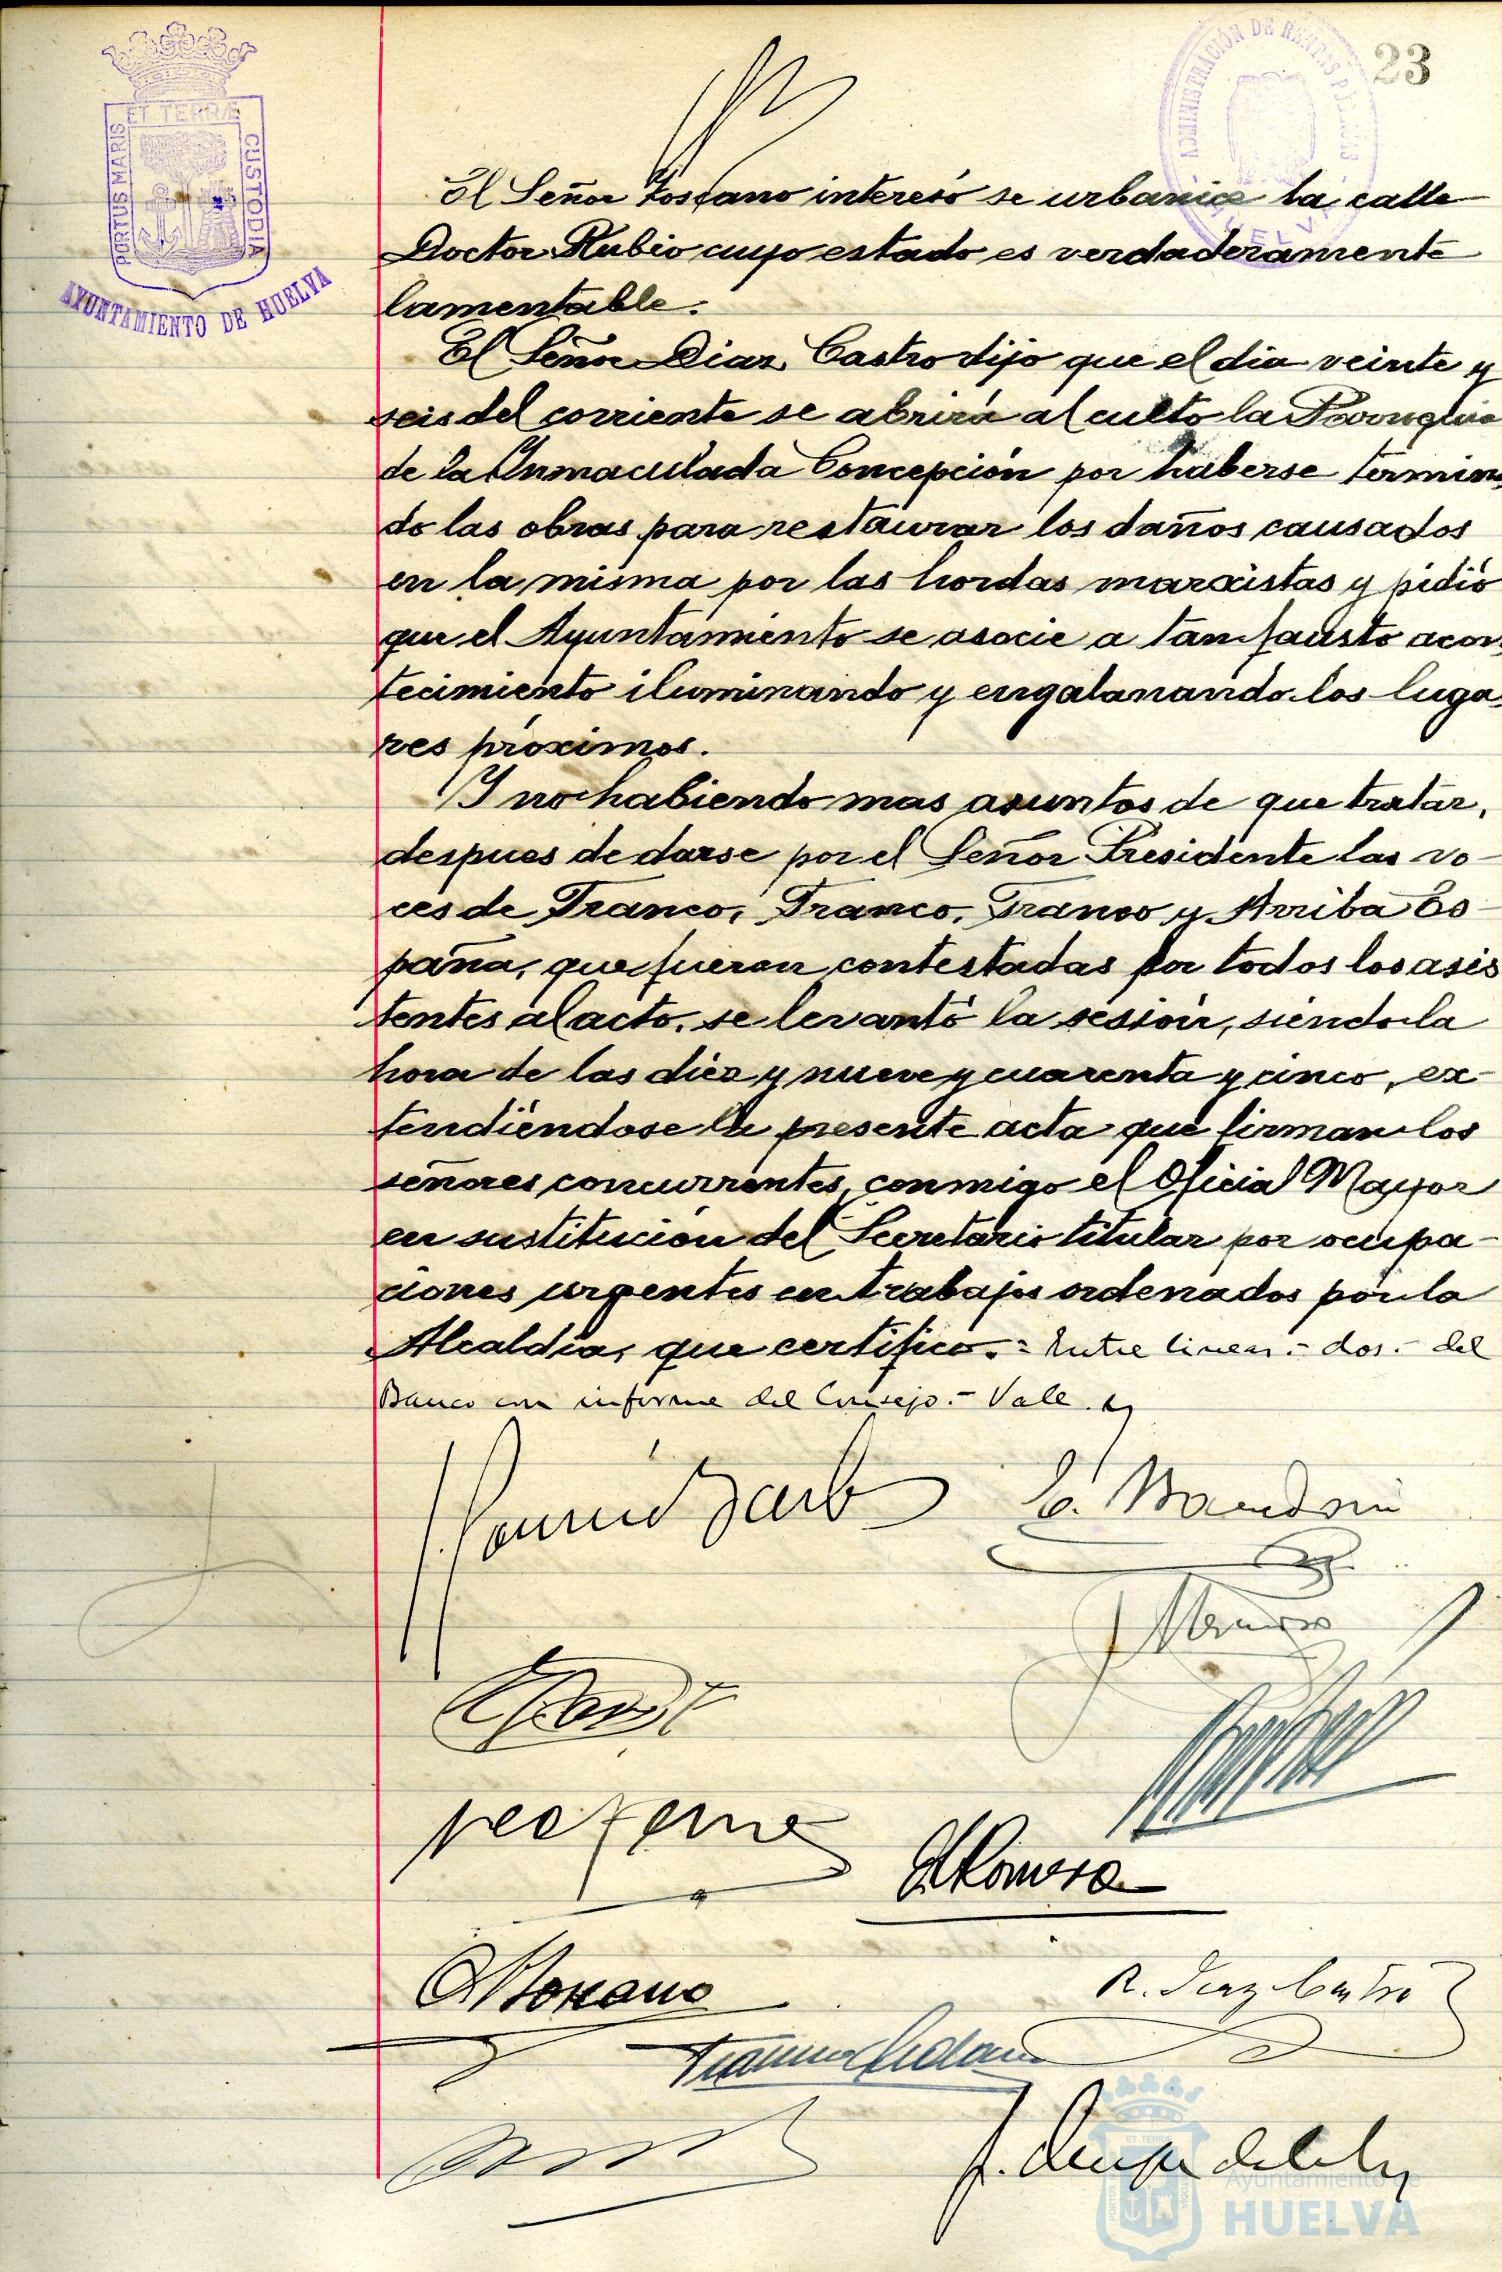 23
ET TERRÆ
PORTUS MARIS
CUSTODIA
AYUNTAMIENTO DE HUELVA
ADMINISTRACIÓN DE RENTAS PÚBLICAS
HUELVA
El Señor Toscano interesó se urbanice la calle
Doctor Rubio cuyo estado es verdaderamente
lamentable.
El Señor Diaz Castro dijo que el dia veinte y
seis del corriente se abrirá al culto la Parroquia
de la Inmaculada Concepción por haberse termina
do las obras para restaurar los daños causados
en la misma por las hordas marxistas y pidió
que el Ayuntamiento se asocie a tan fausto acon
tecimiento iluminando y engalanando los luga
res próximos.
Y no habiendo mas asuntos de que tratar,
despues de darse por el Señor Presidente las vo-
ces de Franco, Franco, Franco y Arriba Es-
paña, que fueron contestadas por todos los asis
tentes al acto, se levantó la sesión, siendo la
hora de las diez y nueve y cuarenta y cinco, ex-
tendiéndose la presente acta que firman los
señores concurrentes, conmigo el Oficial Mayor
en sustitución del Secretario titular por ocupa-
ciones urgentes en trabajos ordenados por la
Alcaldia, que certifico.= Entre lineas.- dos.- del
Banco con informe del Consejo.- Vale.
A Romero
Toscano
R. Diaz Castro
ET TERRE
Ayuntamiento de
HUELVA